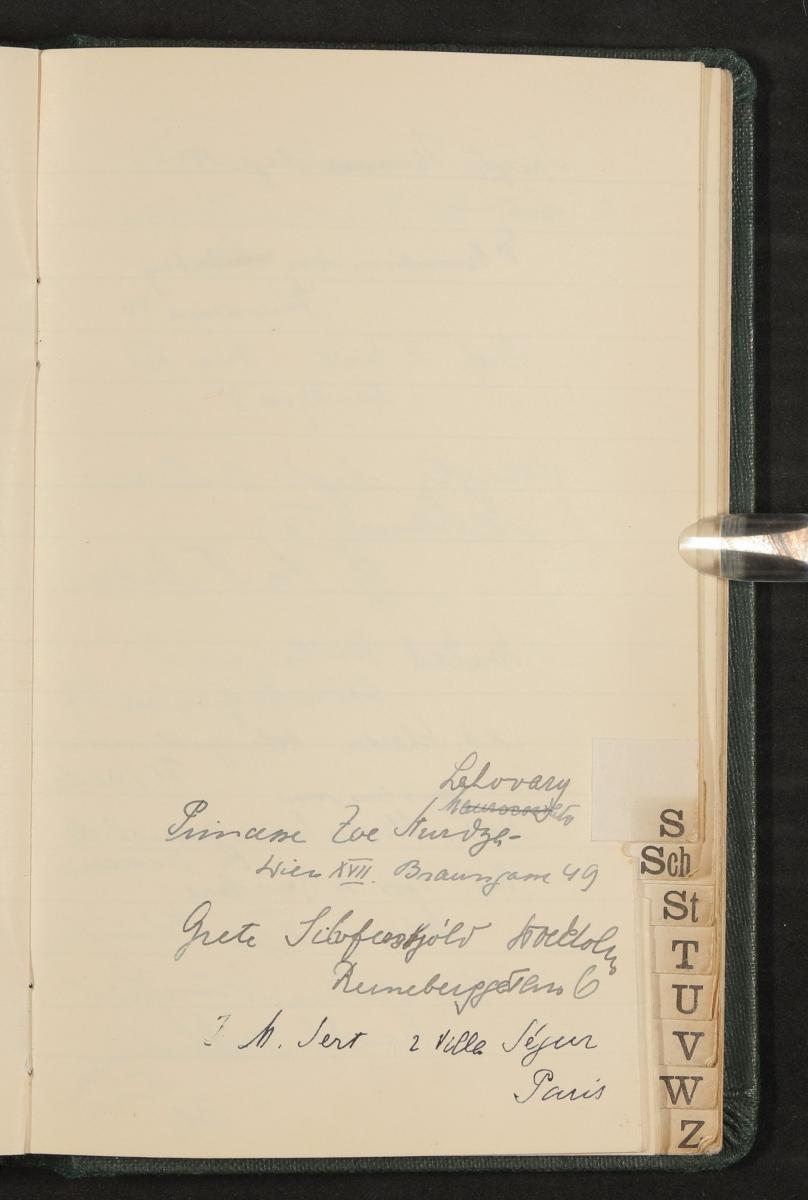 Lahovary
Maurocordato
Princesse Zoe Sturdza-
Wien XVII. Braungasse 49
Grete Silfverskjöld Stockholm
Runebergsgatan 6
J M. Sert 2 Villa Ségur
Paris
S
Sch
St
T
U
V
W
Z